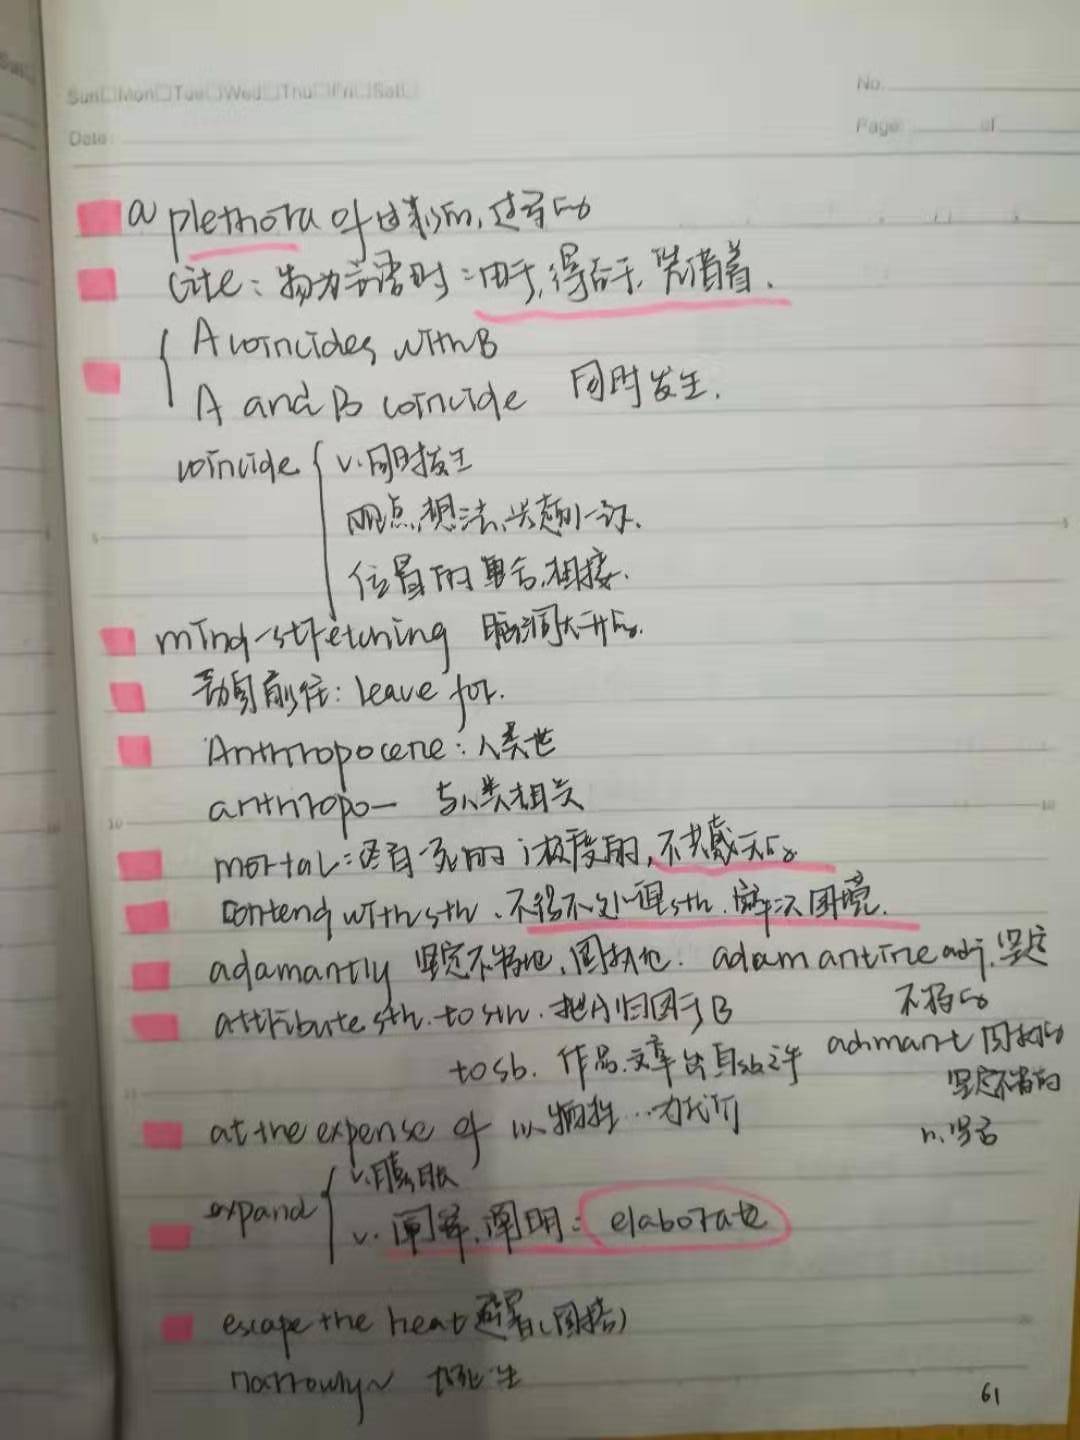 Sun□Mon□Tue□Wed□Thu□Fri□Sat□
No.
Date:
Page: of
a plethora of 过剩的, 过多的
cite: 物为主语时: 由于, 得益于, 凭借着.
A coincides with B
A and B coincide 同时发生.
coincide v.同时发生
观点,想法,兴趣一致.
位置的重合,相接.
mind-stretching 脑洞大开的.
动身前往: leave for.
Anthropocene: 人类世
anthropo— 与人类相关
mortal: 终有一死的; 极度的, 不共戴天的
contend with sth. 不得不处理sth. 解决困境.
adamantly 坚定不移地, 固执地. adamantine adj. 坚定
不移的
attribute sth. to sth. 把A归因于B
to sb. 作品.文章出自sb之手 admant 固执的
坚定不移的
at the expense of 以牺牲…为代价
n.
expand v.膨胀
v. 阐释, 阐明: elaborate
escape the heat 避暑(固搭)
narrowly~
5
10
61